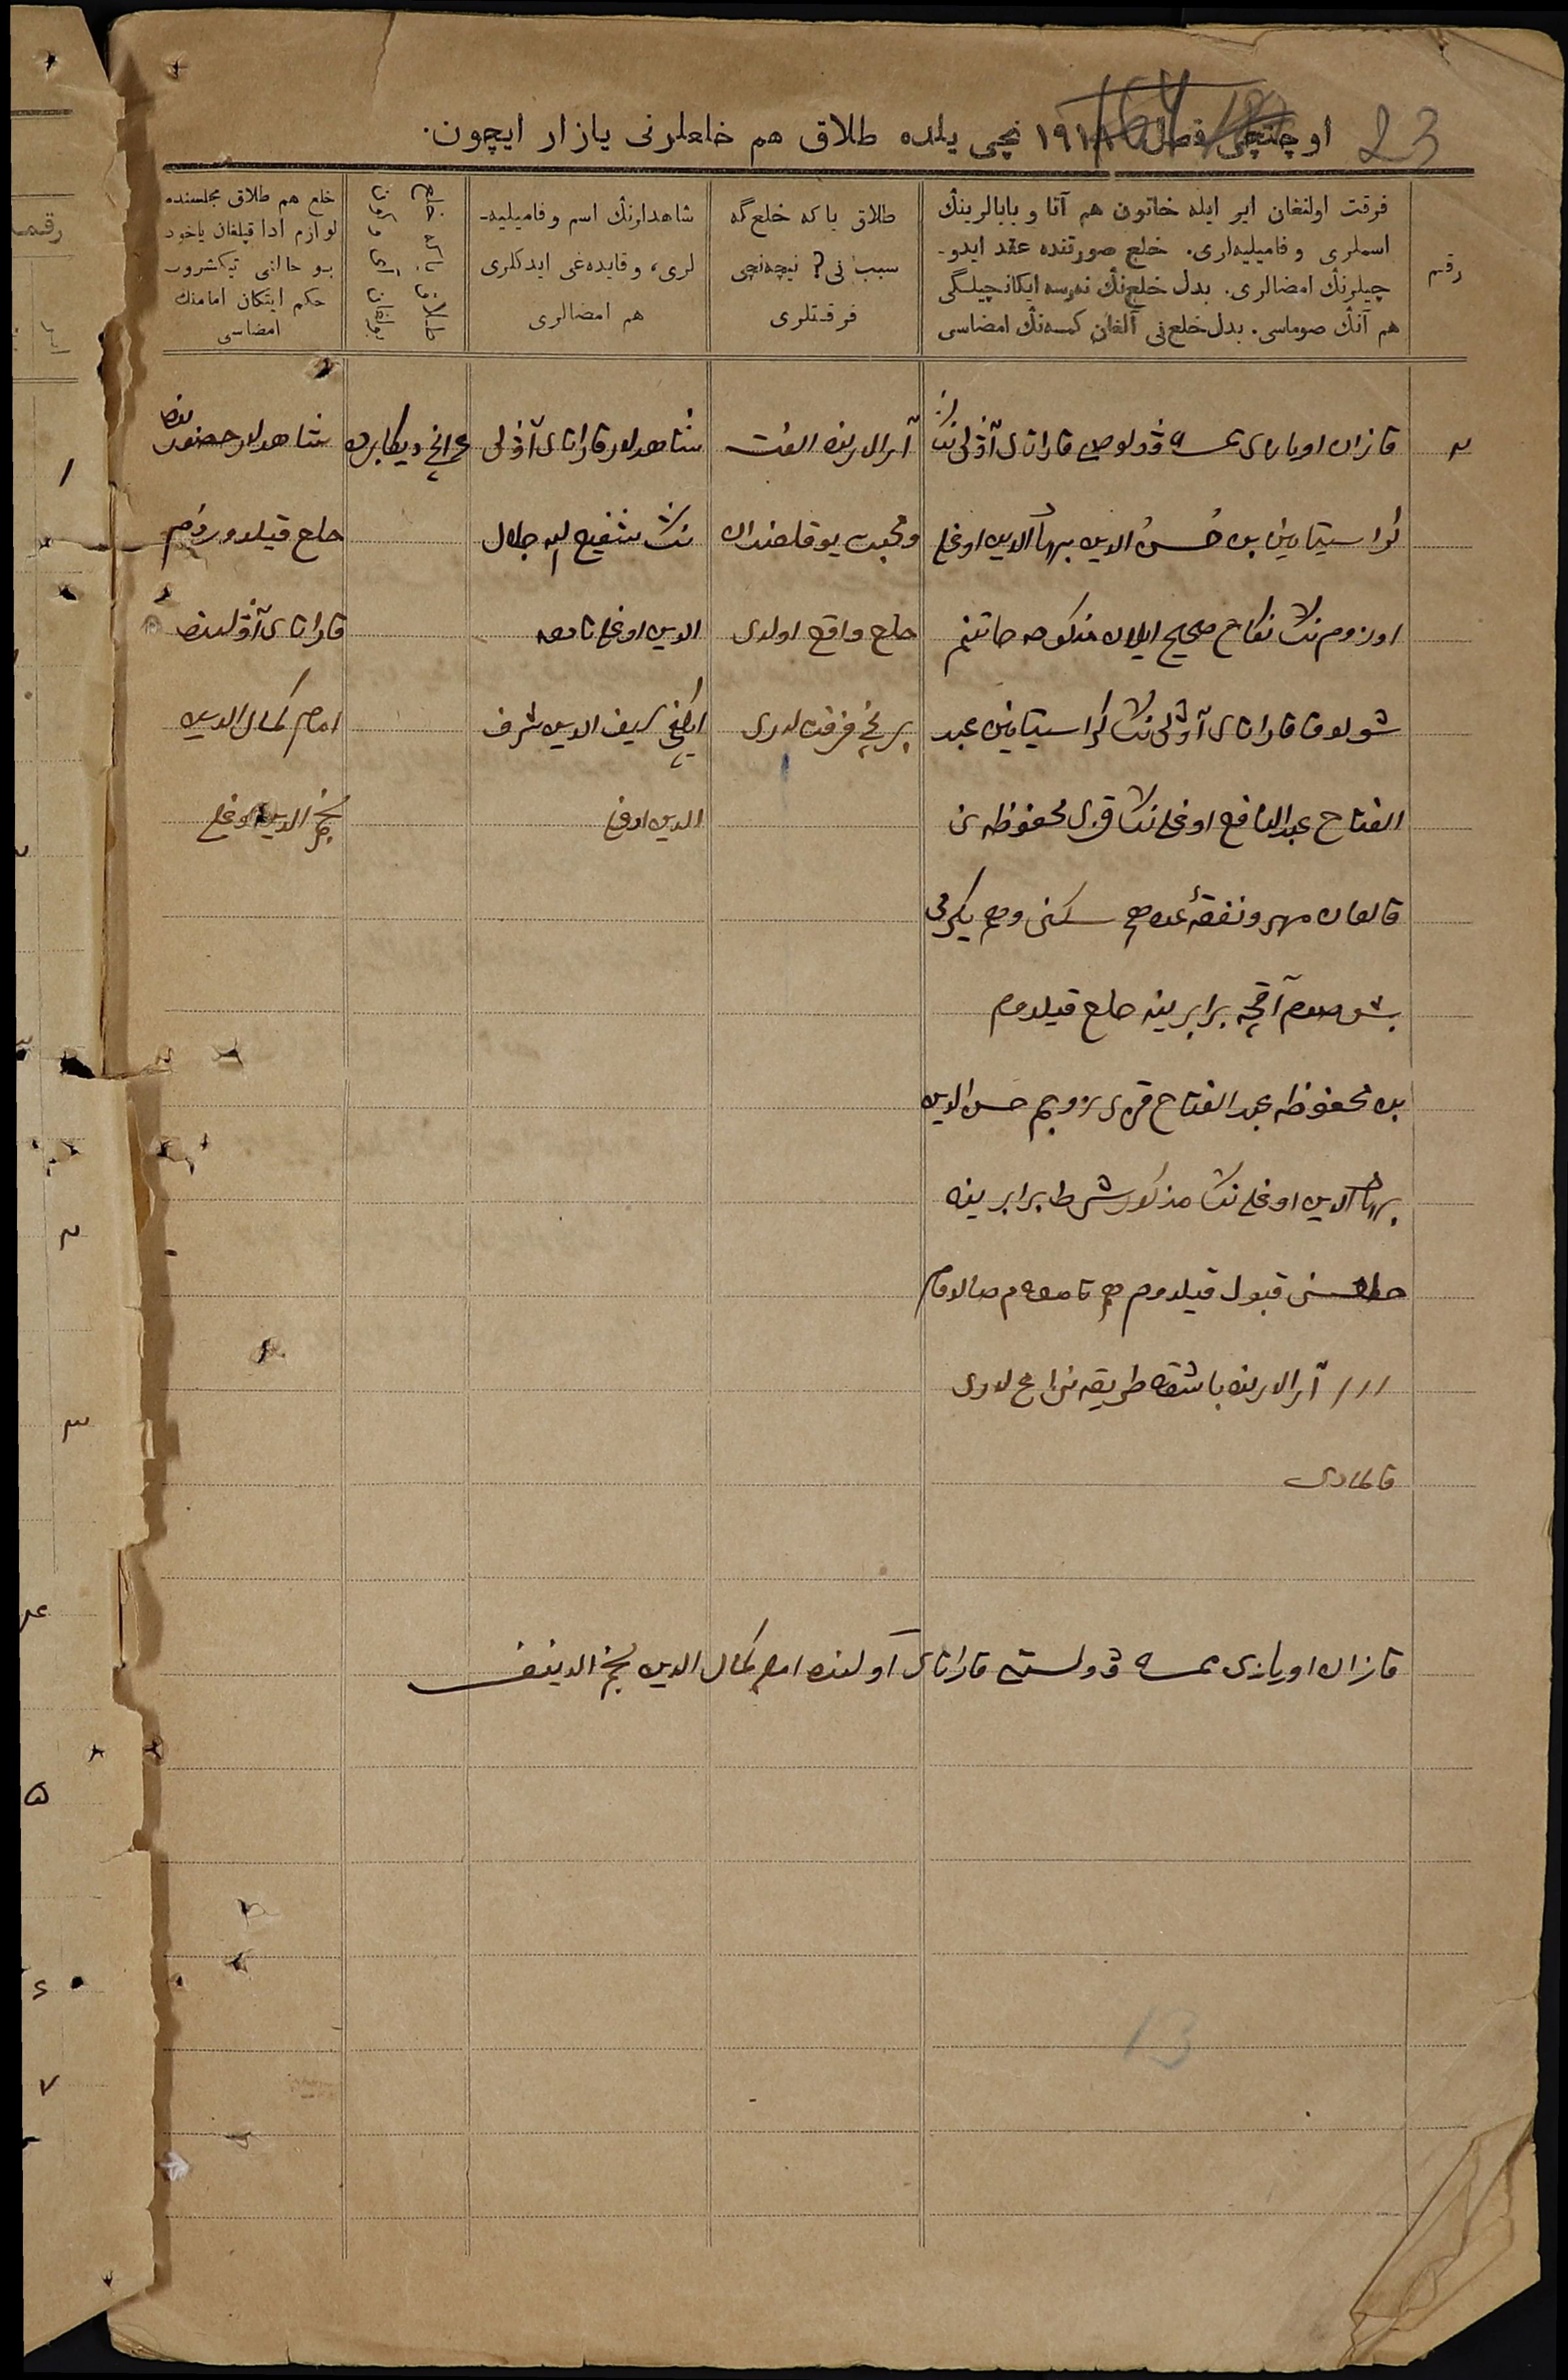 23
اوچنچی فصل ١٩١٨ نچی یلده طلاق هم خلعلرنی یازار ایچون.
رقم
فرقت اولنغان ایر ایله خاتون هم آتا و بابالرینڭ
اسملری وفامیلیه‌لری. خلع صورتنده عقد ایدو-
چیلرنڭ امضالری. بدل خلع‌نڭ نه‌رسه ایکانچیلگی
هم آنڭ صوماسی. بدل خلع‌نی آلغان کمسه‌نڭ امضاسی
طلاق یا که خلع گه
سبب نی؟ نیچه‌نچی
فرقتلری
شاهدلرنڭ اسم وفامیلیه-
لری، وقایده‌غی ایدکلری
هم امضالری
خلع هم طلاق مجلسنده
لوازم ادا قیلغان یاخود
بو حالنی تیکشروب
حکم ایتکان امامنڭ
امضاسی
٢
قازان اویازی قاراتای آولی ننڭ
کراستیانین بن حسن الدین بهاء الدین اوغلی
اوزومننڭ نکاح صحیح ایلان منکوحه خاتنم
شولوق قاراتای آولی ننڭ کراستیانین عبد
الفتاح عبدالنافع اوغلی ننڭ قزی محفوظه نی
قالغان مهر ونفقهٔ عده هم سکنی وهم یکرمی
بش صوم آقچه برابرینه خلع قیلدوم
بن محفوظه عبد الفتاح قزی زوجم حسن الدین
بهاء الدین اوغلی ننڭ مذکور شرط برابرینه
خلعسنی قبول قیلدوم هم تامغام صالدوم
/// آرالارنده باشقه طریقه نزاع لاری
قالمادی
آرالارنده الفت
ومحبت یوقلقندان
خلع واقع اولدی
برنچی فرقت لاری
شاهدلار قاراتای آولی
ننڭ شفیع الله جلال
الدین اوغلی تامغه
ایکنچی سیف الدین شرف
الدین اوغلی
٤ انچی دیکابرده
شاهدلار حضورنده
خلع قیلدوردوم
قاراتای آولنده
امام کمال الدین
نجم الدین اوغلی
قازان اویازی ڤولستی قاراتای آولنده امام کمال الدین نجم الدینف
13
رقم
١
٢
٣
٤
٥
٦
٧